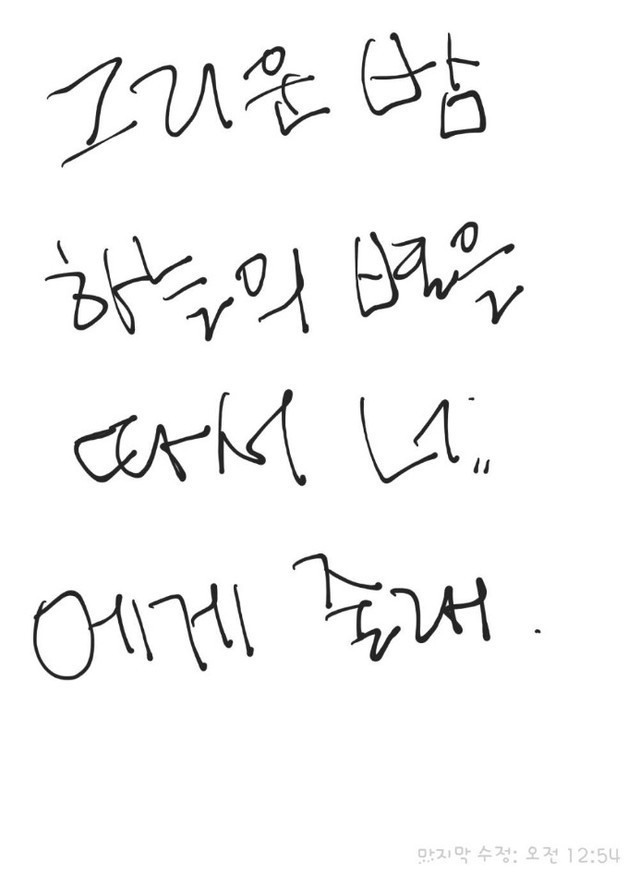 그리운 밤
하늘의 별을
따서 너..
에게 줄래.
마지막 수정: 오전 12:54